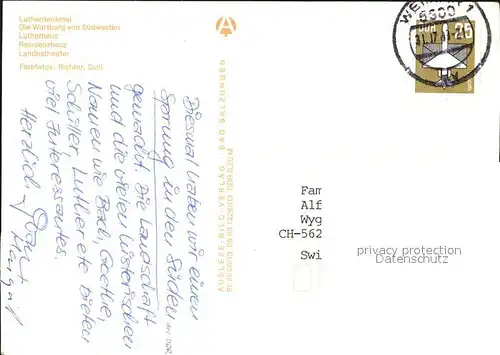 Lutherdenkmal
Die Wartburg von Südwesten
Lutherhaus
Reuterhaus
Landestheater
Farbfotos: Richter, Suhl
A
AUSLESE-BILD-VERLAG · BAD SALZUNGEN
Diesmal haben wir einen
Sprung in den Süden
in der DDR
gewagt. Die Landschaft
und die vielen historischen
Namen wie Bach, Goethe,
Schiller, Luther etc bieten
viel Interessantes.
Herzlich
5300
DDR 25
Fam
Alf
Wyg
CH-562
Swi
privacy protection
Datenschutz